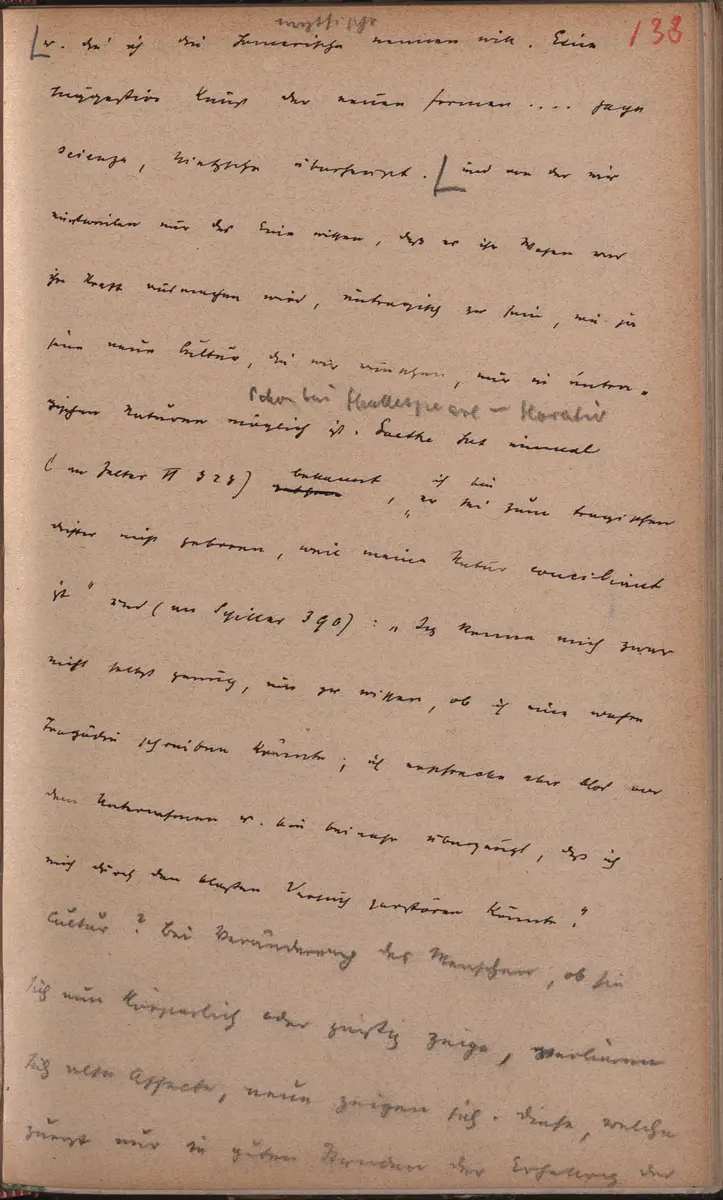 mythische
138
u. die ich die homerische nennen will. Eine
Suggestive Kunst der neuen Formen .... gaya
scienza, Nietzsche überschreibt. und von der wir
einstweilen nur das Eine wissen, daß es ihr Wesen und
ihre Kraft ausmachen wird, untragisch zu sein, wie ja
jene neue Cultur, die wir wünschen, nur in untra„
Schon bei Shakespeare – Horatio
gischen Naturen möglich ist. Goethe hat einmal
(an Zelter VI 328) bekannt, „ich bin zum tragischen
dichter nicht geboren, weil meine Natur conciliant
ist“ und (an Schiller 390): „Ich kenne mich zwar
nicht selbst genug, um zu wissen, ob ich eine wahre
Tragödie schreiben könnte; ich erschrecke aber blos vor
dem Unternehmen u. bin beinahe überzeugt, daß ich
mich durch den bloßen Versuch zerstören könnte.“
Cultur? Bei Veränderung des Menschen, ob sie
sich nun körperlich oder geistig zeige, verlieren
sich alte Affecte, neue zeigen sich. diese, welche
zuerst nur in guten Stunden der Erhebung der